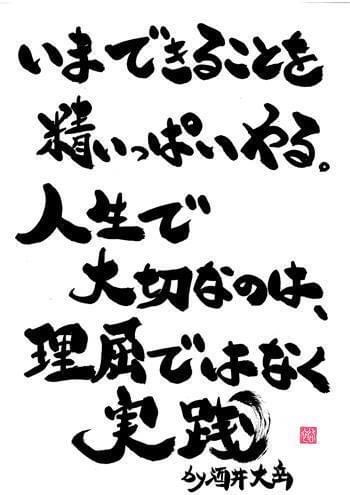 いまできることを
精いっぱいやる。
人生で
大切なのは、
理屈ではなく
実践
by 酒井大岳